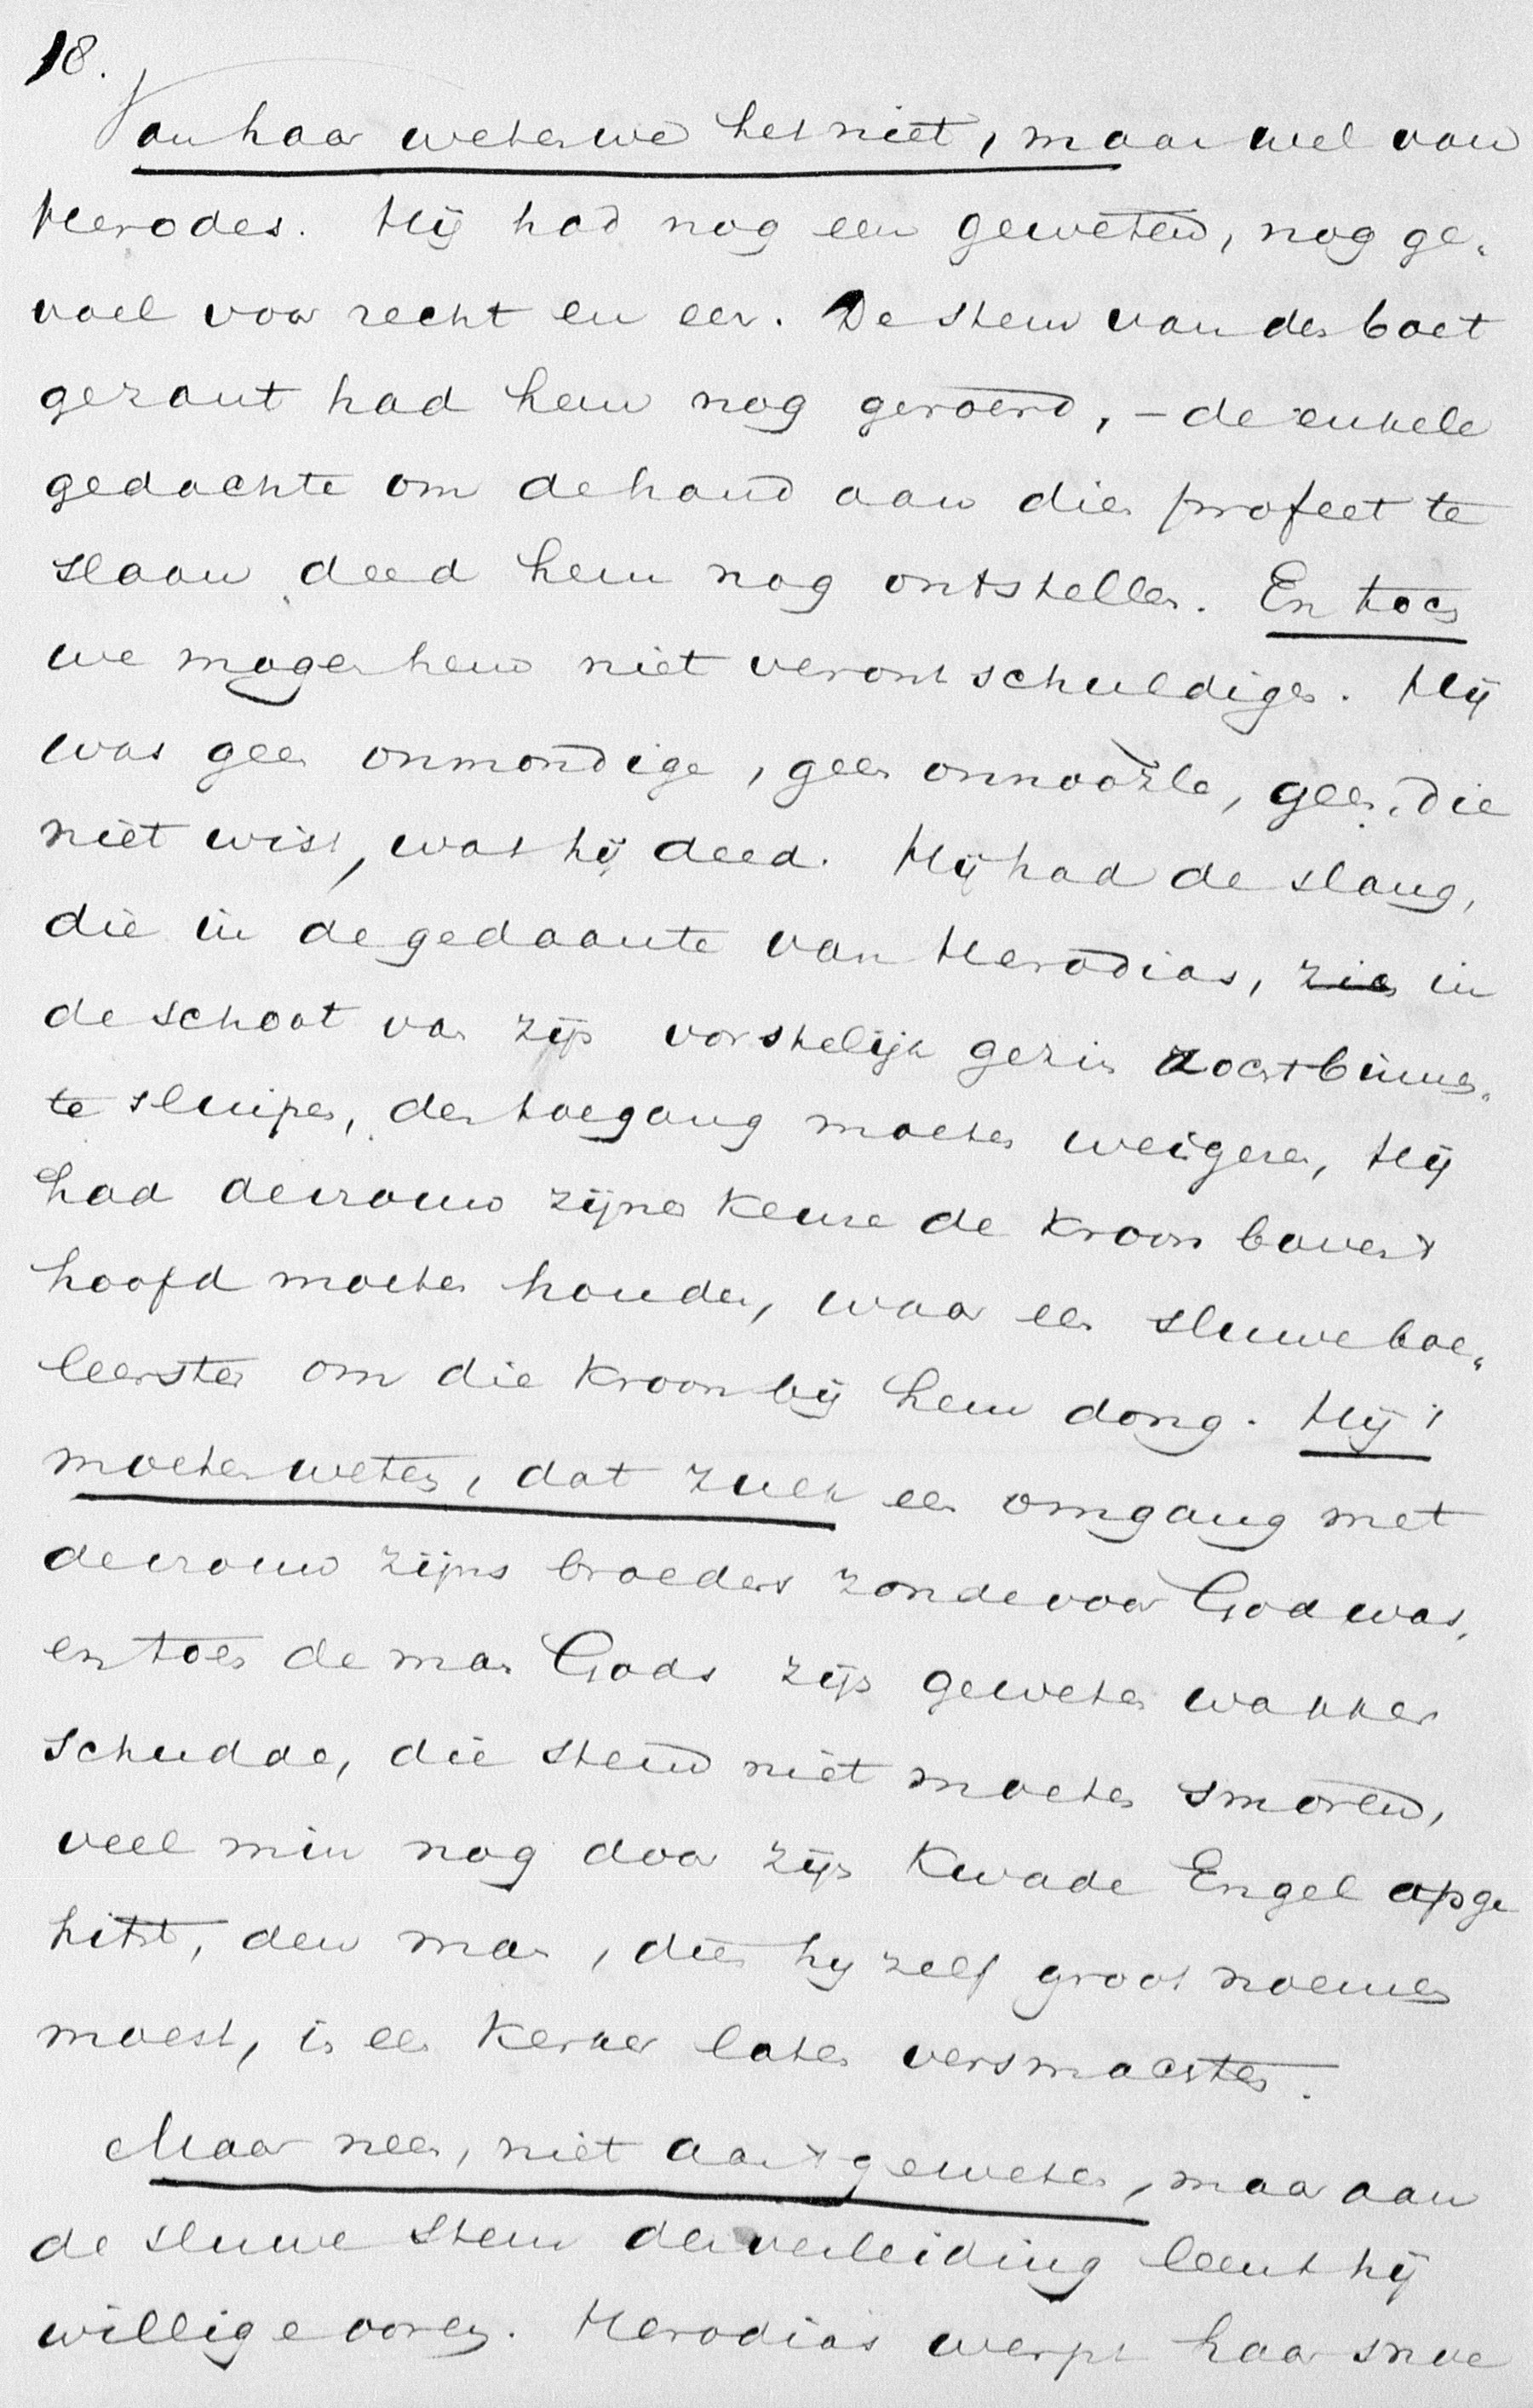 18.
Van haar weten we het niet, maar wel van
Herodes. Hij had nog een geweten, nog ge-
voel voor recht en eer. De stem van den boet
gezant had hem nog geroerd, - de enkele
gedachte om de hand aan dien profeet te
slaan deed hem nog ontstellen. En toch
we mogen hem niet verontschuldigen. Hij
was geen onmondige, geen onnoozle, geen, die
niet wist, wat hij deed. Hij had de slang,
die in de gedaante van Herodias, zich in
de schoot van zijn vorstelijk gezin zocht binnen-
te sluipen, den toegang moeten weigeren, Hij
had de vrouw zijner keuze de kroon boven 't
hoofd moeten houden, waar een sluwe boe-
leerster om die kroon bij hem dong. Hij !
moeten weten, dat zulk een omgang met
de vrouw zijns broeders zonde voor God was,
en toen de man Gods zijn geweten wakker
schudde, die stem niet moeten smoren,
veel min nog door zijn kwade Engel opge
hitst, den man, dien hij zelf groot noemen
moest, in een kerker laten versmachten.
Maar neen, niet aan 't geweten, maar aan
de sluwe stem der verleiding leent hij
willige ooren. Herodias werpt haar snoe